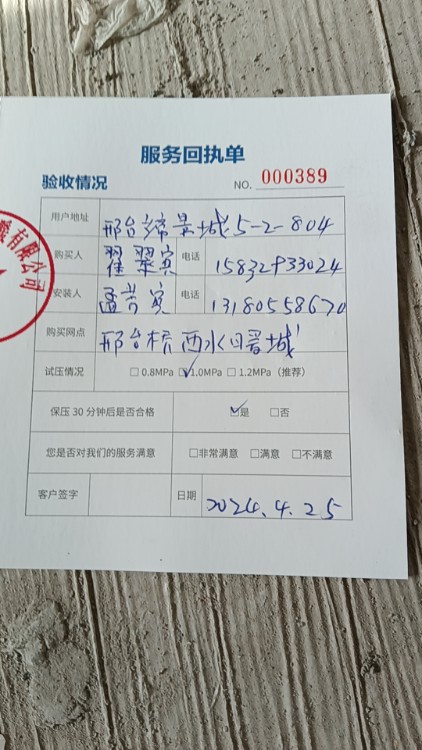 服务回执单
验收情况 NO. 000389
用户地址 邢台 景城5-2-804
购买人 翟 电话 15832933024
安装人 孟芳宾 电话 13180558670
购买网点 邢台桥西水暖城
试压情况 □0.8MPa ☑1.0MPa □1.2MPa（推荐）
保压30分钟后是否合格 ☑是 □否
您是否对我们的服务满意 □非常满意 □满意 □不满意
客户签字 日期 2024.4.25
有限公司